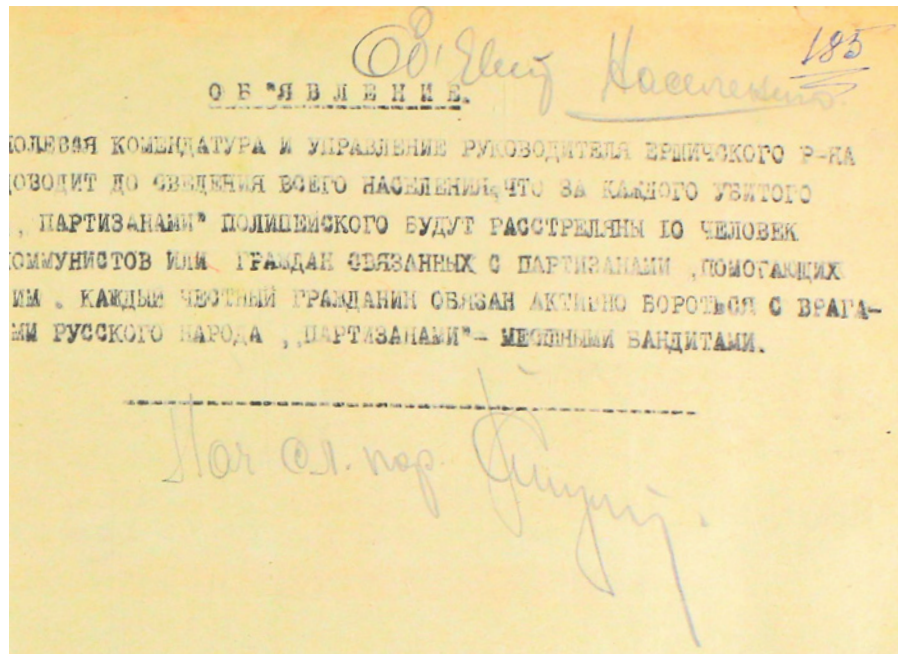 185
Населению.
ОБ"ЯВЛЕНИЕ.
ПОЛЕВАЯ КОМЕНДАТУРА И УПРАВЛЕНИЕ РУКОВОДИТЕЛЯ ЕРШИЧСКОГО Р-НА
ДОВОДИТ ДО СВЕДЕНИЯ ВСЕГО НАСЕЛЕНИЯ,ЧТО ЗА КАЖДОГО УБИТОГО
,,ПАРТИЗАНАМИ" ПОЛИЦЕЙСКОГО БУДУТ РАССТРЕЛЯНЫ 10 ЧЕЛОВЕК
КОММУНИСТОВ ИЛИ ГРАЖДАН СВЯЗАННЫХ С ПАРТИЗАНАМИ ,ПОМОГАЮЩИХ
ИМ . КАЖДЫЙ ЧЕСТНЫЙ ГРАЖДАНИН ОБЯЗАН АКТИВНО БОРОТЬСЯ С ВРАГА-
МИ РУССКОГО НАРОДА ,,ПАРТИЗАНАМИ"- БАНДИТАМИ.
Нач сл. пор.